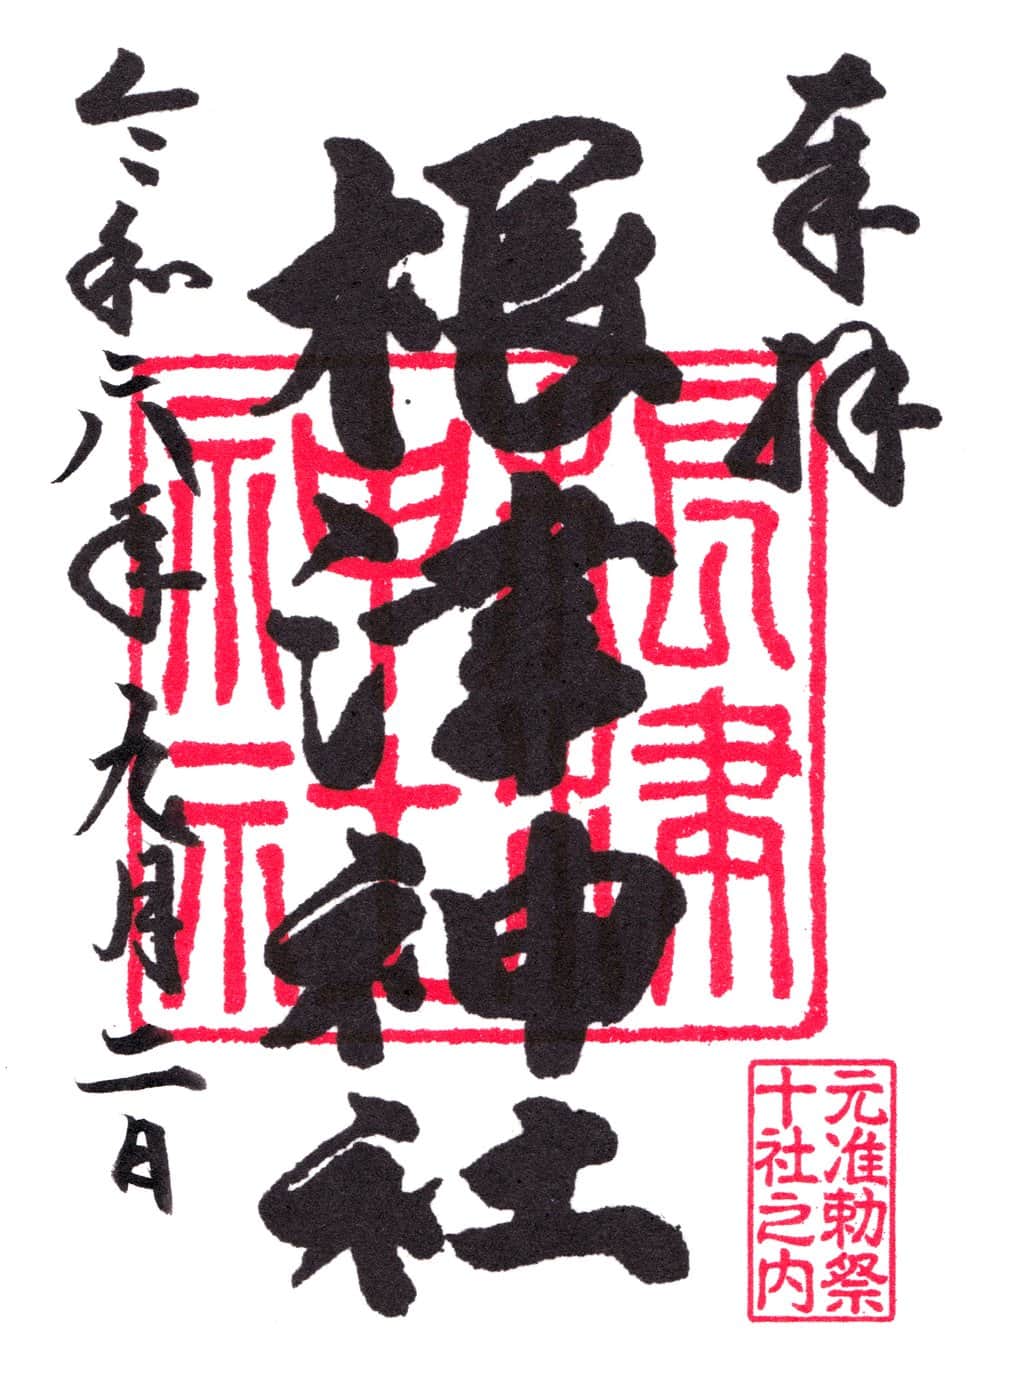 奉拝
根津神社
令和六年九月二日
根津
神社
元准勅祭
十社之内